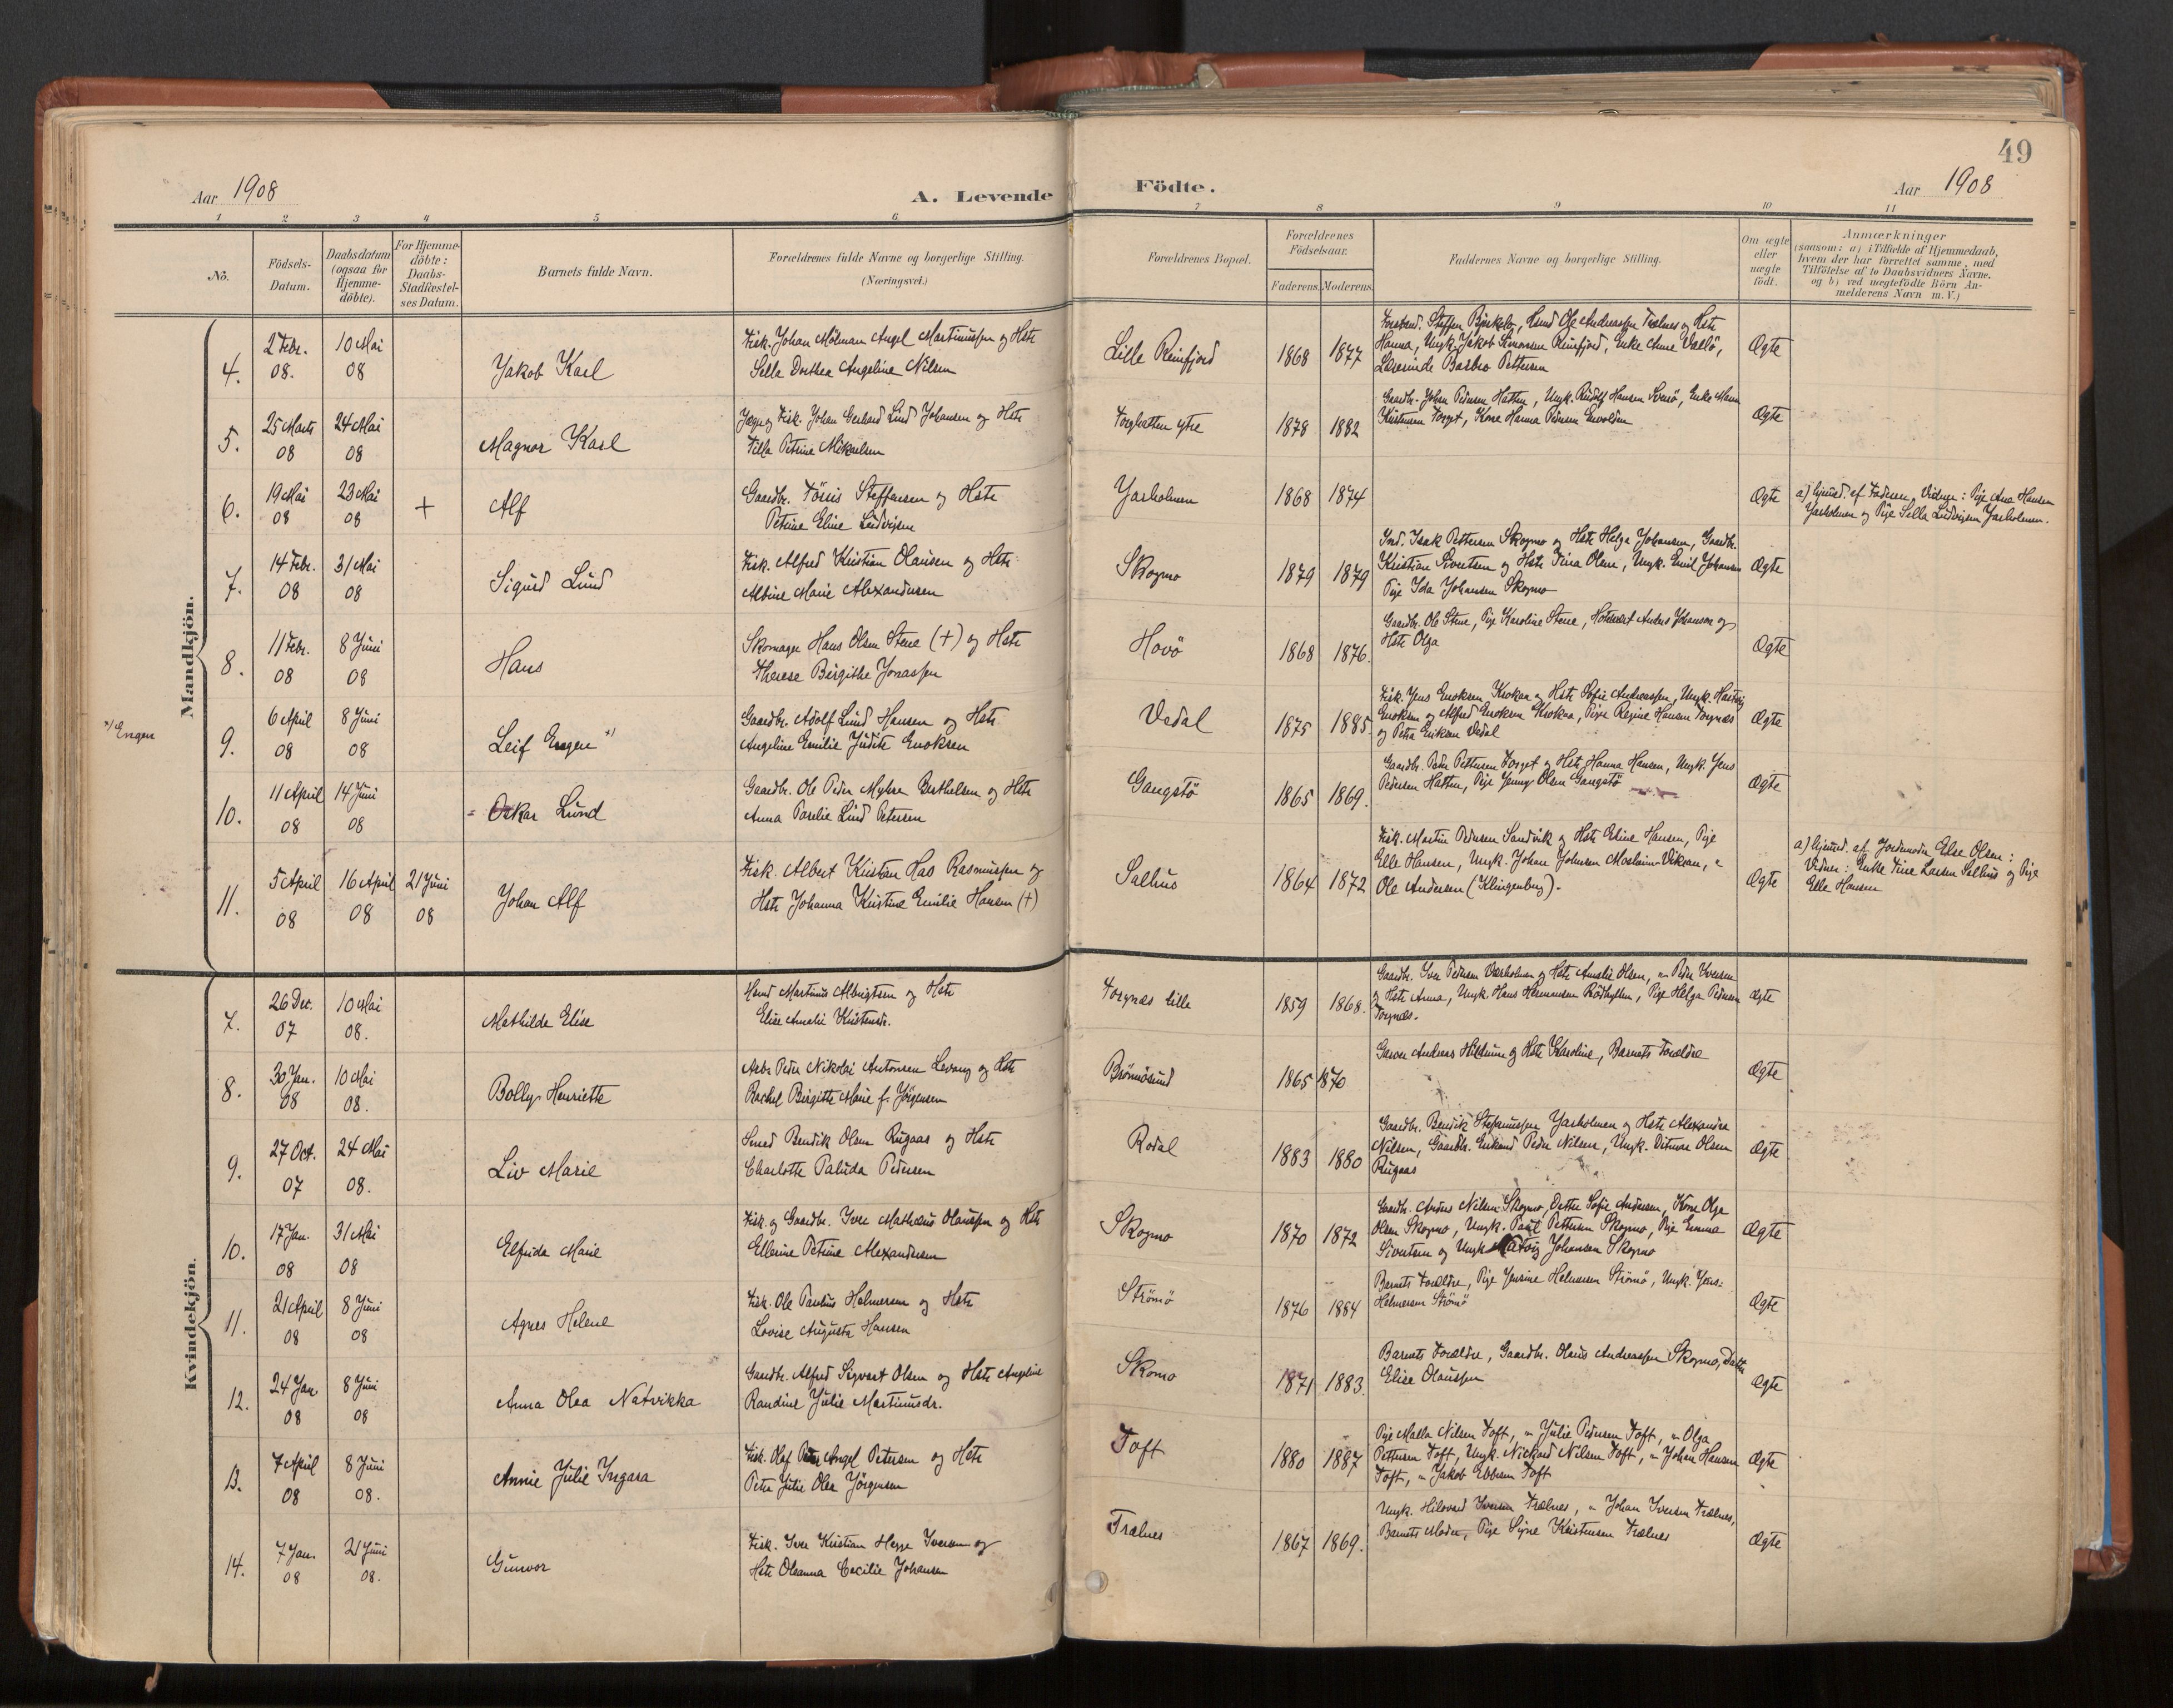 49
Aar 1908
A. Levende
Födte.
Aar 1908
1 2 3 4 5 6 7 8 9 10 11
No.
Födsels-Datum.
Daabsdatum (ogsaa for Hjemme-döbte).
For Hjemme-döbte: Daabs-Stadfæstel-ses Datum.
Barnets fulde Navn.
Forældrenes fulde Navne og borgerlige Stilling.
(Næringsvei.)
Forældrenes Bopæl.
Forældrenes Födselsaar.
Faderens. Moderens.
Faddernes Navne og borgerlige Stilling.
Om ægte eller uægte födt.
Anmærkninger
(saasom: a) i Tilfælde af Hjemmedaab,
hvem der har forrettet samme, med
Tilföielse af to Daabsvidners Navne,
og b) ved uægtefödte Börn An-
melderens Navn m. V.)
Mandkjön.
4. 2 Febr. 08. 10 Mai 08 Jakob Karl
Fisk. Johan Mölman Angel Martinussen og Hstr
Sella Dorthea Angeline Nilsen
Lille Reinfjord 1868 1877
Hanna, Ungk. Jakob Simonsen Reinfjord, Enke Anne Vallö,
Lærerinde Barbro Pettersen
Ægte
5. 25 Marts 08 24 Mai 08 Magnor Karl
Fisk. Johan Gerhard Lind Johansen og Hstr
Petrine Mikaelsen
Torghatten ytre 1878 1882
Gaardbr. Johan Pedersen Hatten, Ungk. Rudolf Hansen
Kristensen Torget, Kone Hanna Pedersen
Ægte
6. 19 Mai 08 23 Mai 08 + Alf
Gaardbr. Steffensen og Hstr
Petrine Eline Ludvigsen
Jarholmen 1868 1874
Ægte
a) hjemmed. af Faderen, Vidner: Pige Ana Hansen
Jarholmen og Pige Sella Ludvigsen Jarholmen.
7. 14 Febr. 08 31 Mai 08 Sigurd Lund
Fisk. Alfred Kristian Olausen og Hstr
Albine Marie Alexandersen
Skogmo 1879 1879
Ind. Isak Pettersen Skogmo og Hstr Helga Johansen, Gaardbr.
Kristian Sivertsen og Hstr Tina Olsen, Ungk. Emil Johansen
Pige Ida Johansen Skogmo
Ægte
8. 11 Febr. 08 8 Juni 08 Hans
Skomager Hans Olsen Stene (+) og Hstr
Therese Birgithe Jonassen
Havö 1868 1876.
Gaardbr. Ole Stene, Pige Karoline Stene, Anders Johansen og
Hstr Olga
Ægte
*) Engen
9. 6 April 08 8 Juni 08 Leif Engen *)
Gaardbr. Adolf Lund Hansen og Hstr
Angeline Emilie Judite Enoksen
Vedal 1875 1885.
Fisk. Jens Enoksen Krokaa og Hstr Sofie Andreassen, Ungk. Hartvig
Enoksen og Alfred Enoksen Krokaa, Pige Regine Hansen Torgnæs
og Petra Eriksen Vedal
Ægte
10. 11 April 08 14 Juni 08 Oskar Lund
Gaardbr. Ole Peder Myhre Berthelsen og Hstr
Anna Parelie Lund Petersen
Gangstö 1865 1869.
Gaardbr. Peder Pettersen Torget og Hstr Hanna Hansen, Ungk. Jens
Pedersen Hatten, Pige Jenny Olsen Gangstö
Ægte
11. 5 April 08 16 April 08 21 Juni 08 Johan Alf
Fisk. Albert Kristian Has Rasmussen og
Hstr Johanna Kristine Emilie Hansen (+)
Salhus 1864 1872
Fisk. Martin Pedersen Sandvik og Hstr Eline Hansen, Pige
Elle Hansen, Ungk. Johan Johnsen Mosheim-Vikran, "
Ole Andersen (Klingenberg).
Ægte
a) hjemmed. af Jordemoder Else Olsen:
Vidner: Enke Tine Larsen Salhus og Pige
Elle Hansen
Kvindekjön.
7. 26 Dec. 07 10 Mai 08. Mathilde Elise
Martinus Albrigtsen og Hstr
Elise Amalie Kristensdr.
Torgnæs lille 1859 1868.
Gaardbr. Iver Pedersen og Hstr Amalie Olsen, " Peder Iversen
og Hstr Anna, Ungk. Hans Hermansen, Pige Helga Pedersen
Torgnæs.
Ægte
8. 30 Jan. 08 10 Mai 08. Bolly Henriette
Arb. Peder Nikolai Antonsen Levang og Hstr
Rachel Birgitte Marie f. Jörgensen
Brönnösund 1865 1870
Garver Andreas Hildrum og Hstr Karoline, Barnets Forældre
Ægte
9. 27 Oct. 07 24 Mai 08. Liv Marie
Smed Bendik Olsen Rugaas og Hstr
Charlotte Paluda Pedersen
Rodal 1883 1880
Gaardbr. Bendik Steffensen Jarholmen og Hstr Alexandra
Nilsen, Gaardbr. Enkemd Peder Nilsen, Ungk. Ditman Olsen
Rugaas
Ægte
10. 17 Jan. 08 31 Mai 08 Elfrida Marie
Fisk. og Gaardbr. Iver Mathæus Olaussen og Hstr
Ellerine Petrine Alexandersen
Skogmo 1870 1872
Gaardbr. Anders Nilsen Skogmo, Datter Sofie Andersen, Kone Olga
Olsen Skogmo, Ungk. Paul Pettersen Skogmo, Pige Emma
Sivertsen og Ungk. Johansen Skogmo
Ægte
11. 21 April 08 8 Juni 08 Agnes Helene
Fisk. Ole Paulus Helmersen og Hstr
Lovise Augusta Hansen
Strömö 1876 1884
Barnets Forældre, Pige Jensine Helmersen Strömö, Ungk. Jens
Helmersen Strömö
Ægte
12. 24 Jan 08 8 Juni 08 Anna Olea Natvikka
Gaardbr. Alfred Sigvart Olsen og Hstr Angeline
Randine Julie Martinusdr.
Skomo 1871 1883.
Barnets Forældre, Gaardbr. Olaus Andreassen Skogmo, Datter
Elise Olaussen
Ægte
13. 7 April 08 8 Juni 08. Annie Julie Ingara
Fisk. Olaf Peder Angel Petersen og Hstr
Petra Julie Olea Jörgensen
Toft 1880 1887
Pige Malla Nilsen Toft, " Julie Pedersen Toft, " Olga
Pettersen Toft, Ungk. Nickard Nilsen Toft, " Johan Hansen
Toft, " Jakob Ebbesen Toft
Ægte
14. 7 Jan. 08 21 Juni 08. Gunvor
Fisk. Iver Kristian Hegge Iversen og
Hstr Oleanna Cecilie Johansen
Trælnes 1867 1869.
Ungk. Hilovard Iversen Trælnes, " Johan Iversen Trælnes,
Barnets Moder, Pige Signe Kristensen Trælnes
Ægte